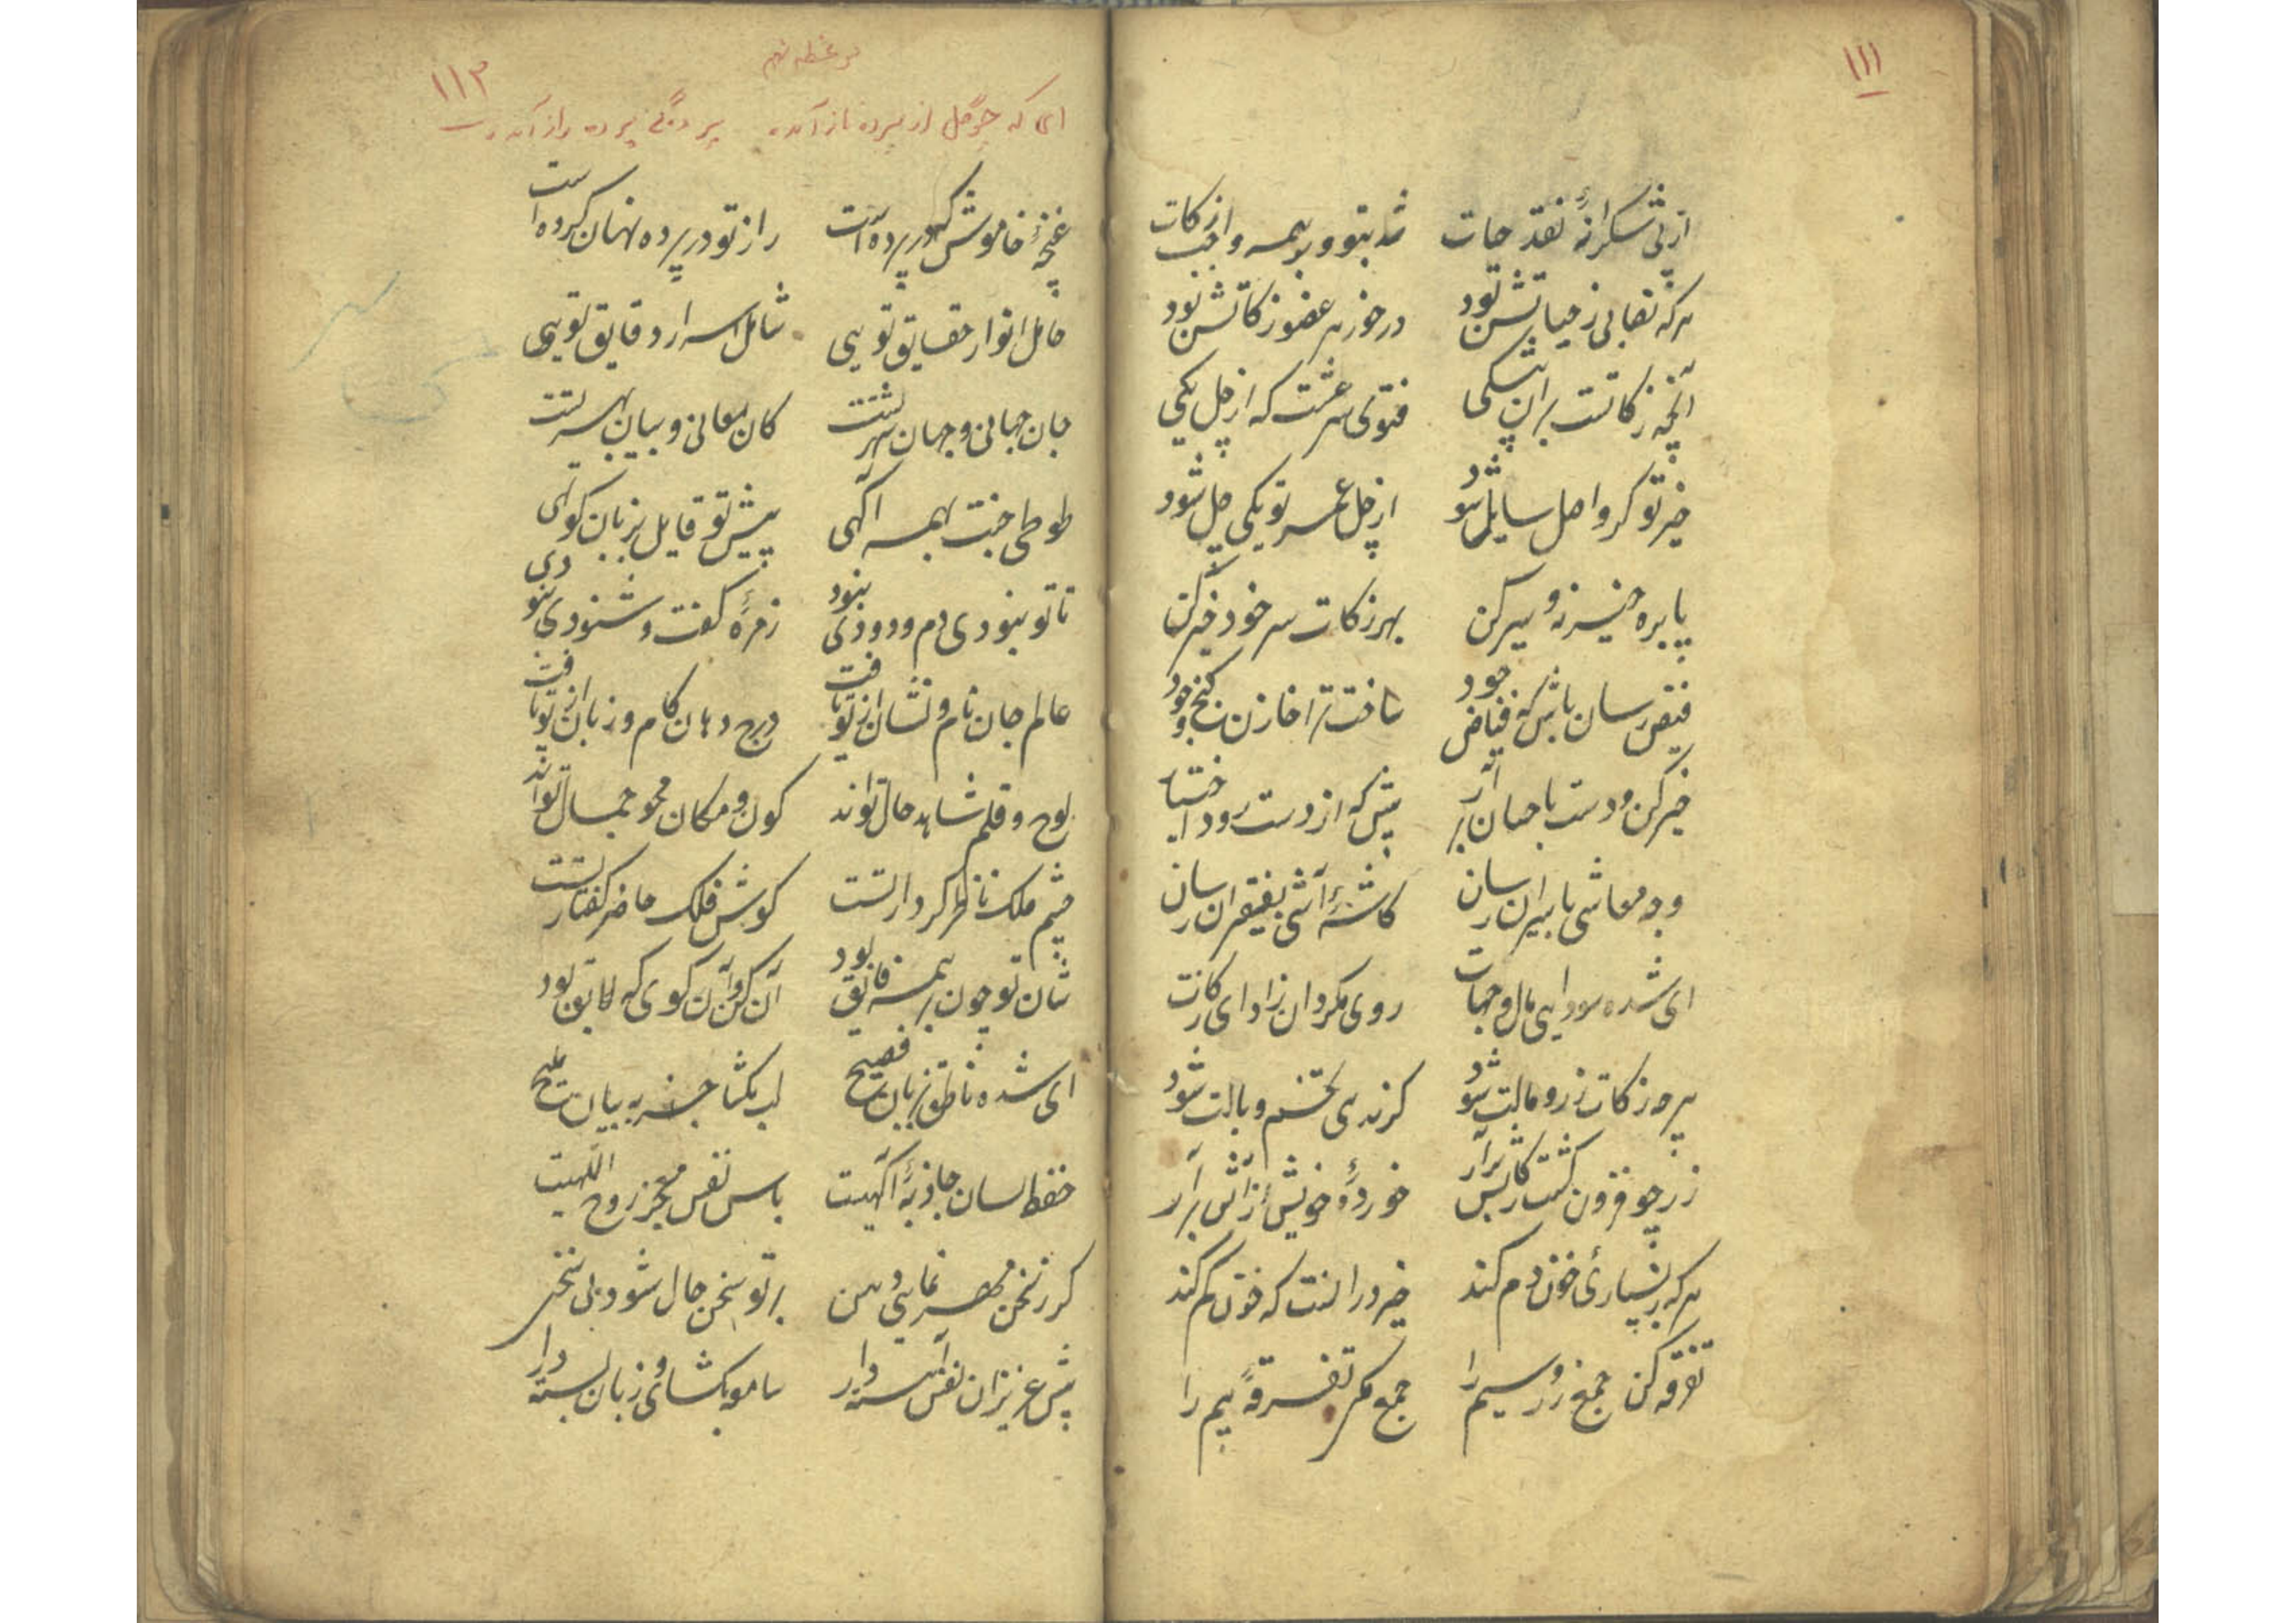 ۱۱۱
از پی شکرانهٔ نقد حیات شد بتو و بر همه واجب زکات
هر که نصابی ز حیاتش بود در خور هر عضو زکاتش بود
آنچه زکاتست بر آن بی‌شکی فتوی شرعست که از چل یکی
خیر تو گر واصل سایل شود از چل عمر تو یکی چل شود
پا بره خیر نه و سیر کن بهر زکات سر خود خیر کن
فیض رسان باش که فیاض جود ساخت ترا خازن گنج وجود
خیر کن و دست باحسان برآر پیش که از دست رود اختیار
وجه معاشی باسیران رسان کاشهٔ آشی بفقیران رسان
ای شده سودایی مال و جهات روی مگردان ز ادای زکات
هر چه زکات زر و مالت شود گر ندهی وبالت شود
زر چو فزون گشت ز کارش برآر خوردهٔ خویش از آتش برآر
هر که ز بسیاری خون دم کند خیر در آنست که خون کم کند
تفرقه کن جمع زر و سیم را جمع مکن تفرقهٔ بیم را
موعظه نهم
۱۱۳
ای که چو گل از پرده ناز آمده پردگی پرده راز آمده
غنچهٔ خاموش که در پرده است راز تو در پرده نهان کرده است
حامل انوار حقایق تویی شامل اسرار دقایق تویی
جان جهانی و جهان بهر تست کان معانی و بیان بهر تست
طوطی جنت بهمه آگهی پیش تو قایل بزبان کوتهی
تا تو نبودی دم و دودی نبود زمرهٔ گفت و شنودی نبود
عالم جان نام و نشان از تو یافت درج دهان کام و زبان از تو یافت
لوح و قلم شاهد حال تواند کون و مکان محو جمال تواند
چشم ملک ناظر کردار تست گوش فلک حاضر گفتار تست
شان تو چون بر همه فایق بود آن کن و آن گوی که لایق بود
ای شده ناطق بزبان فصیح لب مگشا جز به بیان ملیح
حفظ لسان جاذبهٔ آگهیست پاس نفس معجز روح اللهیست
گر ز سخن مهر نمایی دهن بر تو سخن حال شود بی سخن
پیش عزیزان نفس آهسته دار سامعه بگشای و زبان بسته دار